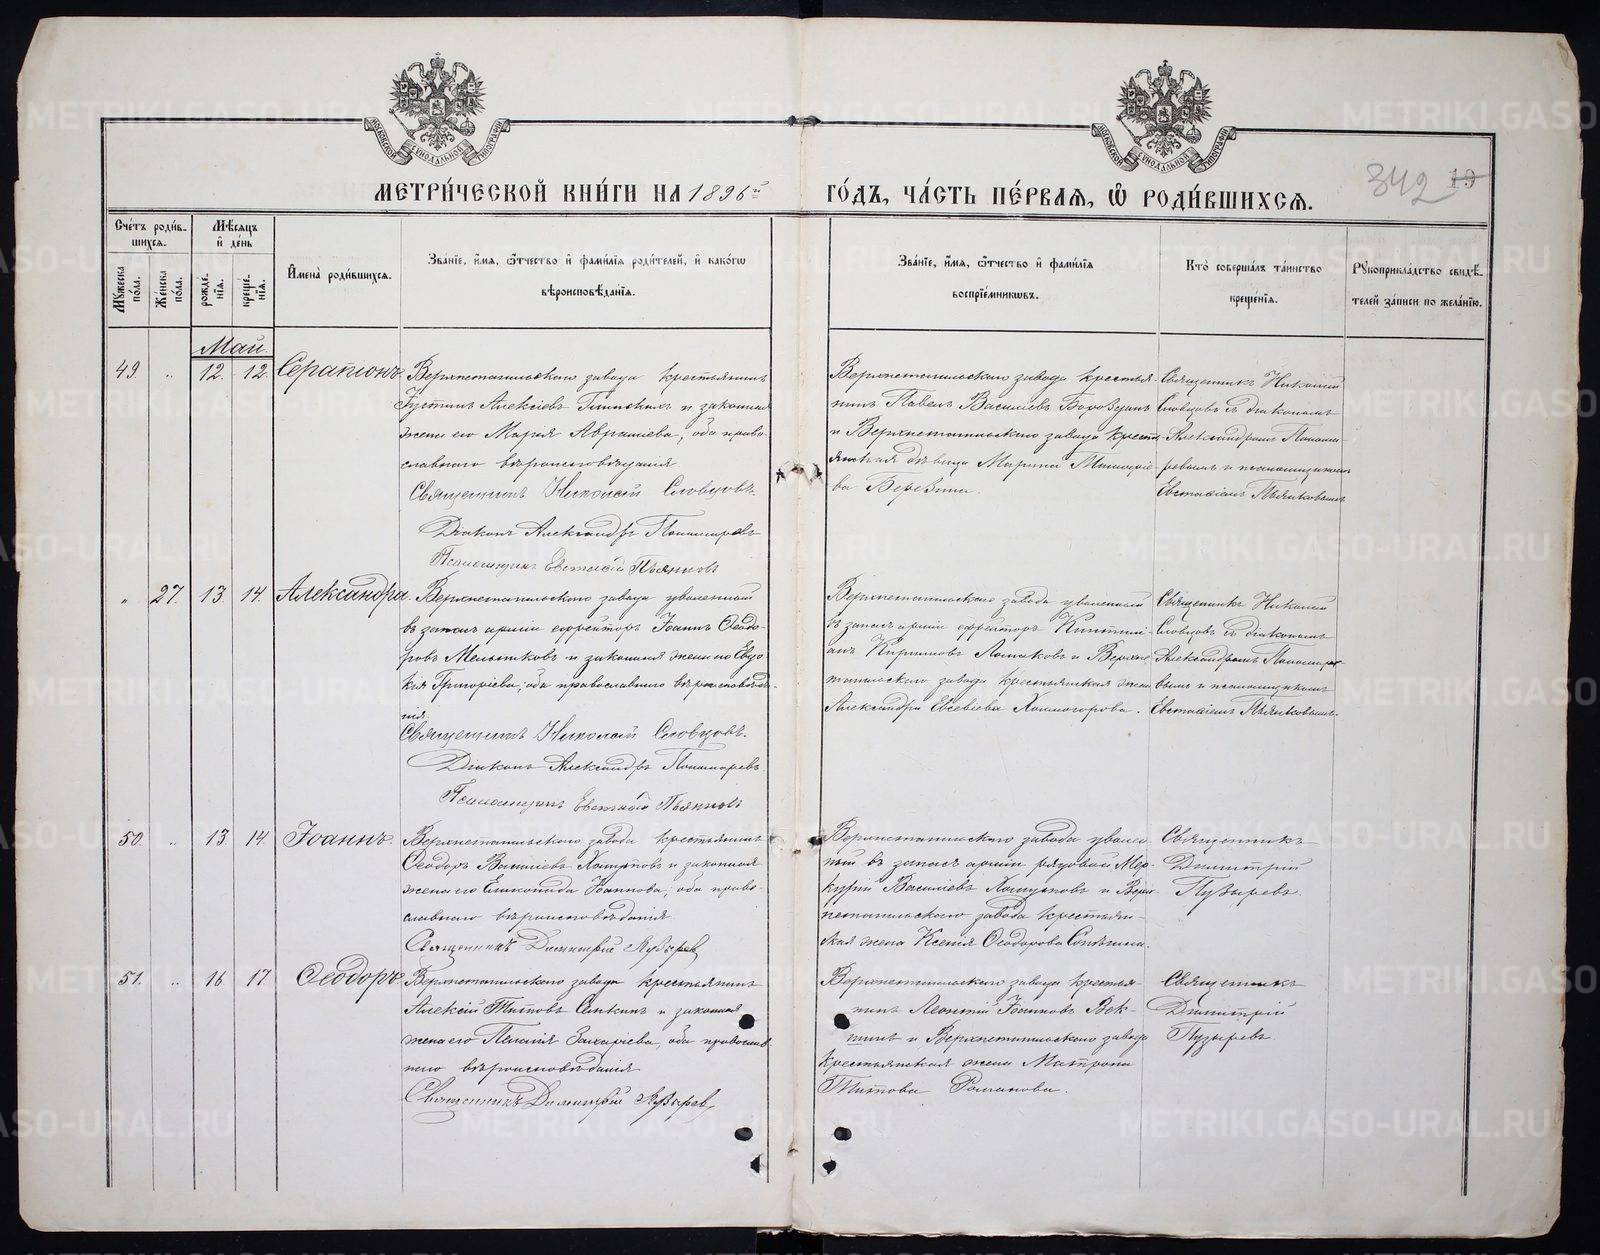 МОСКОВСКОЙ СУНОДАЛЬНОЙ ТИПОГРАФІИ
МОСКОВСКОЙ СУНОДАЛЬНОЙ ТИПОГРАФІИ
МЕТРИ́ЧЕСКОЙ КНИ́ГИ НА 1896й
ГО́ДЪ, ЧА́СТЬ ПЕ́РВАѦ, Ѿ РОДИ́ВШИХСѦ.
342 19
Сче́тъ роди́в-
шихсѧ.
Мѣ́сѧцъ
и҆ де́нь
Мꙋ́жеска
по́ла.
Же́нска
по́ла.
рожде́-
нїѧ.
креще́-
нїѧ.
И҆мена̀ роди́вшихсѧ.
Зва́нїе, и҆́мѧ, ѻ҆́тчество и҆ фами́лїѧ роди́телей, и҆ како́гѡ
вѣроисповѣ́данїѧ.
Зва́нїе, и҆́мѧ, ѻ҆́тчество и҆ фами́лїѧ
воспрїе́мникѡвъ.
Кто̀ соверша́лъ та́инство
креще́нїѧ.
Рꙋкоприкла́дство свидѣ́-
телей за́писи по жела́нїю.
Май
49. „ 12. 12. Серапіонъ.
Верхнетагильскаго завода крестьянинъ
Іустинъ Алексіевъ и законная
жена его Марія Авраміева, оба право-
славнаго вѣроисповѣданія
Священникъ Николай Словцовъ.
Діаконъ Александръ Пономаревъ
Псаломщикъ Евстафій Пьянковъ
Верхнетагильскаго завода крестья-
нинъ Павелъ Василіевъ Бороздинъ
и Верхнетагильскаго завода крестъ-
янская дѣвица Марина
ва Березина.
Священникъ Николай
Словцовъ съ діакономъ
Александромъ Понома-
ревымъ и псаломщикомъ
Евстафіемъ Пьянковымъ
„ 27. 13. 14. Александра.
Верхнетагильскаго завода уволенный
въ запасъ арміи ефрейторъ Іоаннъ Ѳеодо-
ровъ Мельниковъ и законная жена его Евдо-
кія Григоріева, оба православнаго вѣроисповѣда-
нія.
Священникъ Николай Словцовъ.
Діаконъ Александръ Пономаревъ
Псаломщикъ Евстафій Пьянковъ
Верхнетагильскаго завода уволенный
въ запасъ арміи ефрейторъ
анъ Кириловъ Ломаковъ и Верхне-
тагильскаго завода крестьянская жена
Александра Евсевіева Холмогорова.
Священникъ Николай
Словцовъ съ діакономъ
Александромъ Пономаре-
вымъ и псаломщикомъ
Евстафіемъ Пьянковымъ.
50. „ 13. 14. Іоаннъ.
Верхнетагильскаго завода крестьянинъ
Ѳеодоръ Василіевъ Хомутовъ и законная
жена его Іоаннова, оба право-
славнаго вѣроисповѣданія
Священникъ Димитрій Пузыревъ
Верхнетагильскаго завода уволен-
ный въ запасъ арміи рядовой Мер-
курій Василіевъ Хомутовъ и Верх-
нетагильскаго завода крестьян-
ская жена Ксенія Ѳеодорова
Священникъ
Димитрій
Пузыревъ.
51. „ 16 17 Ѳеодоръ.
Верхнетагильскаго завода крестьянинъ
Алексій Титовъ и законная
жена его Пелагія Захаріева, оба православ-
наго вѣроисповѣданія
Священникъ Димитрій Пузыревъ
Верхнетагильскаго завода крестья-
нинъ Леонтій Іоанновъ Век-
шинъ и Верхнетагильскаго завода
крестьянская жена Матрона
Титова Романова.
Священникъ
Димитрій
Пузыревъ.
METRIKI.GASO-URAL.RU